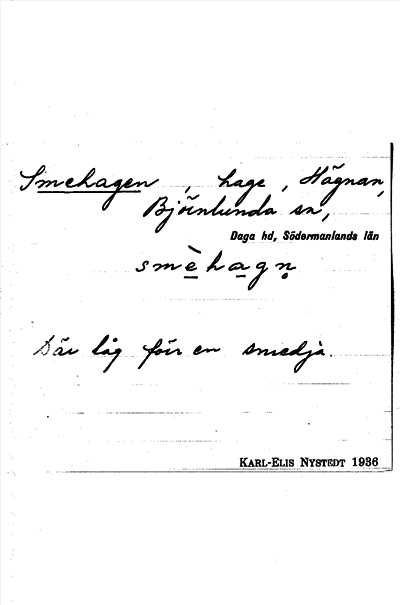 Smehagen, hage, Hägnan,
Björnlunda sn,
Daga hd, Södermanlands län
smè̱ha̱gn̥
Där låg förr en smedja.
KARL-ELIS NYSTEDT 1936